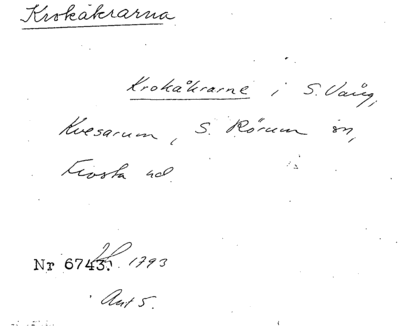 Krokåkrarna
Krokåkrarne i S. Vång,
Kvesarum, S. Rörum sn,
Frosta hd
Nr 6743. 1793
Akt 5.